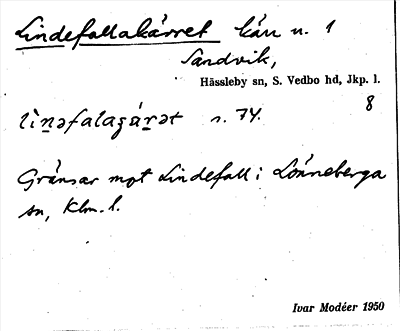 Lindefallakärret kärr n. 1
Sandvik,
Hässleby sn, S. Vedbo hd, Jkp. l.
8
lìṉəfalaʒáṟət s. 74.
Gränsar mot Lindefall i Lönneberga
sn, Klm. l.
Ivar Modéer 1950